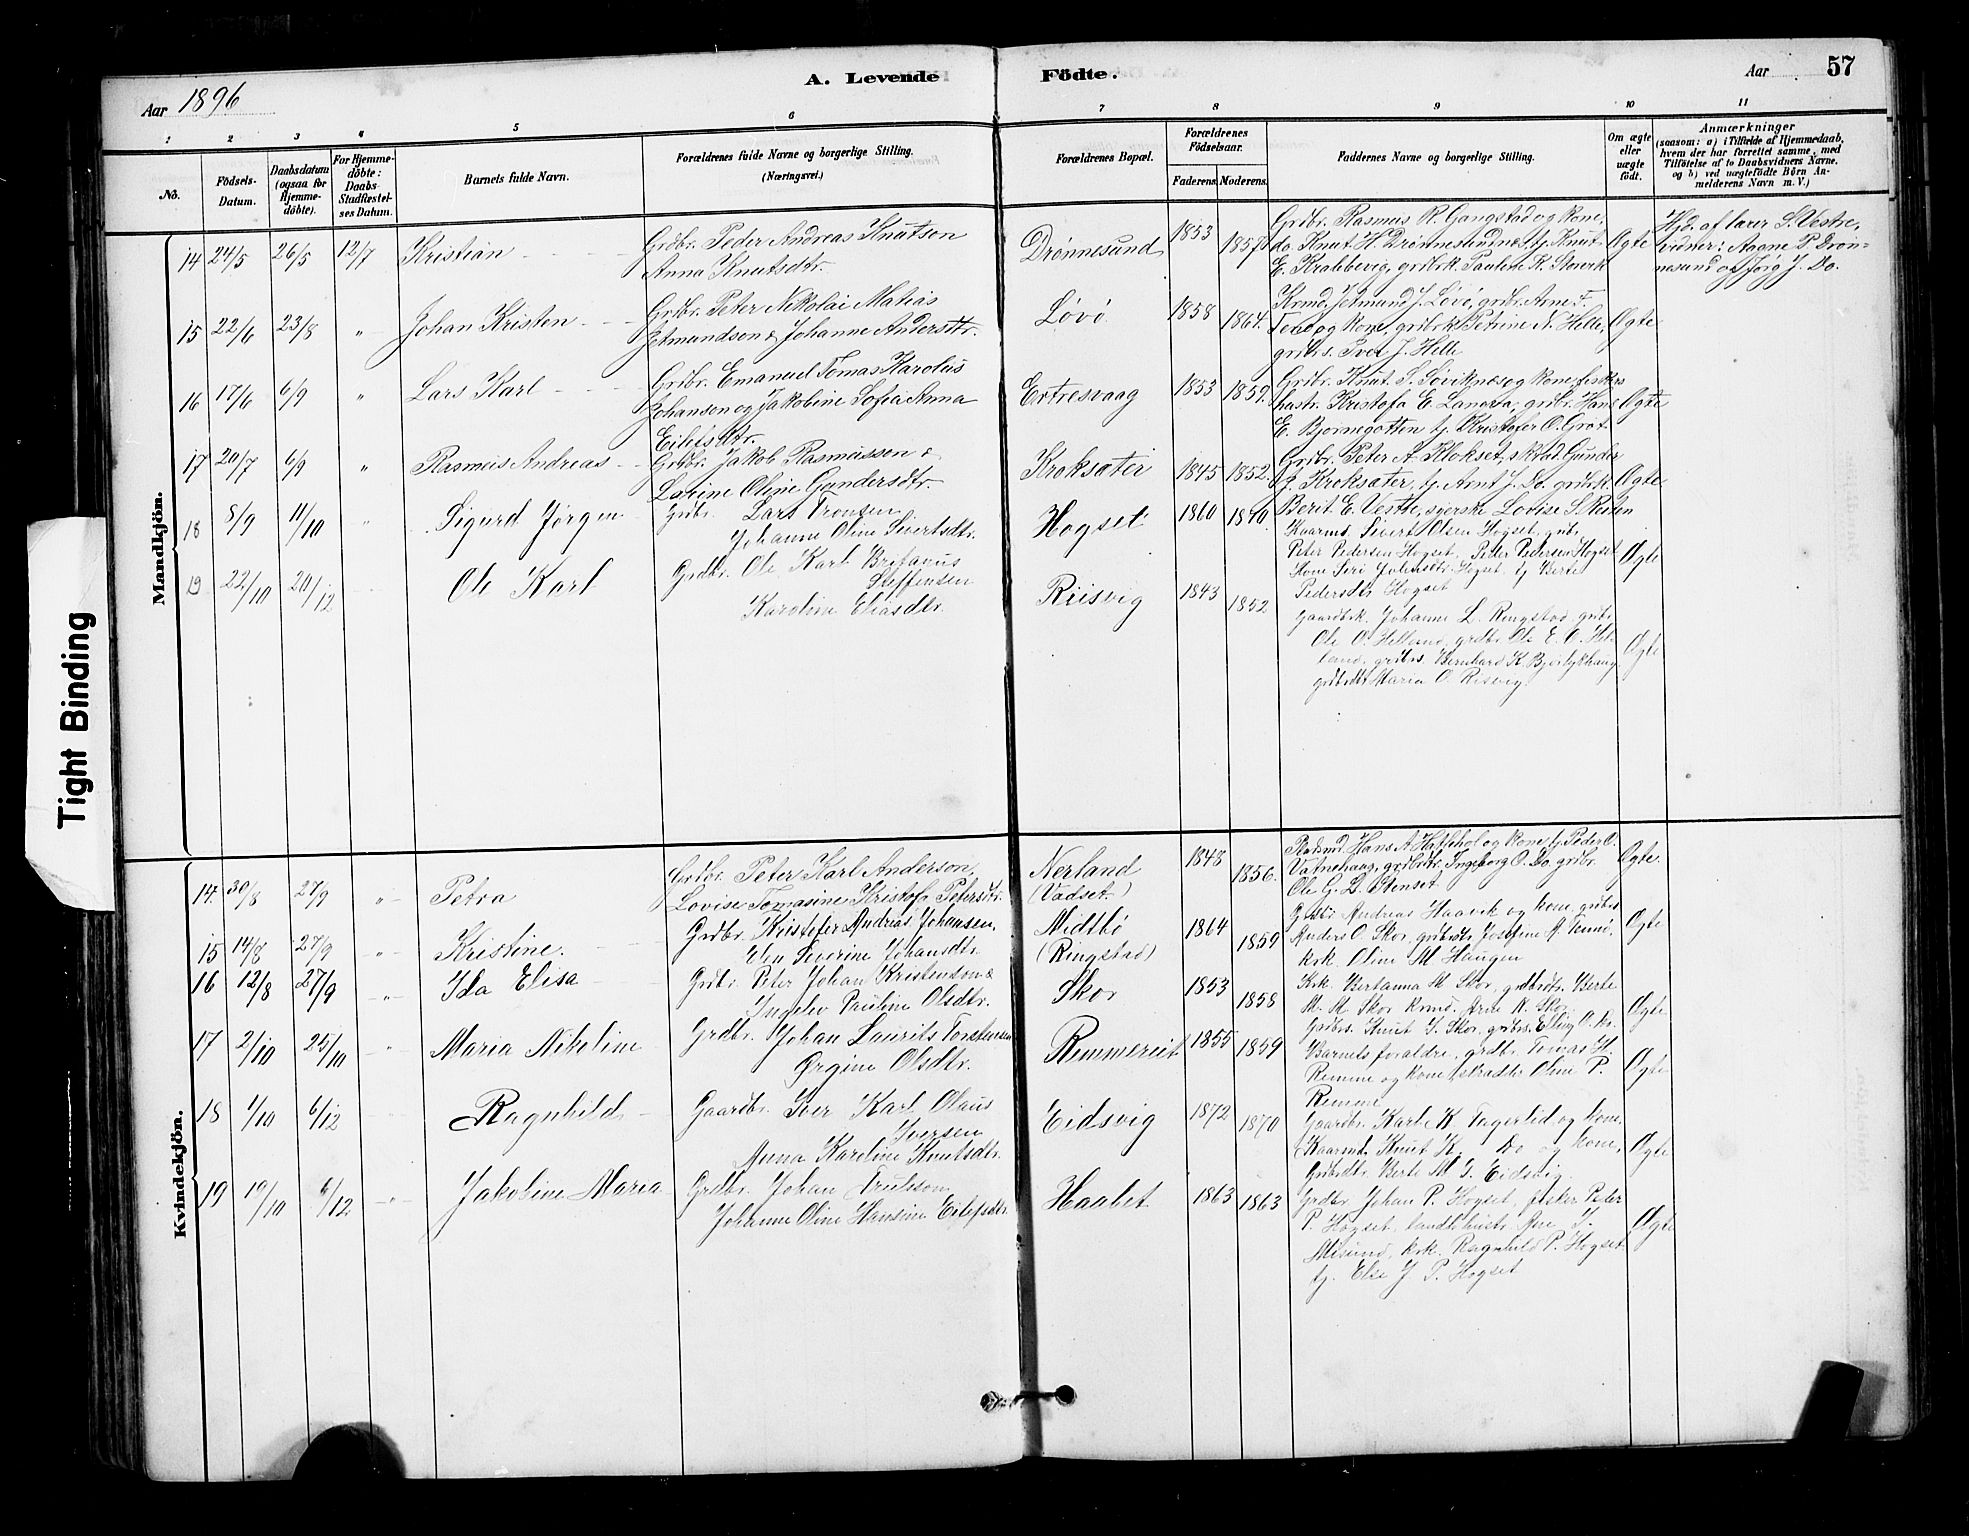 A. Levende Födte.
Aar 1896
Aar 57
1 2 3 4 5 6 7 8 9 10 11
No.
Födsels-Datum.
Daabsdatum (ogsaa for Hjemmedöbte).
For Hjemmedöbte: Daabs-Stadfæstelses Datum.
Barnets fulde Navn.
Forældrenes fulde Navne og borgerlige Stilling.
(Næringsvei.)
Forældrenes Bopæl.
Forældrenes Födselsaar.
Faderens. Moderens.
Faddernes Navne og borgerlige Stilling.
Om ægte eller uægte födt.
Anmærkninger
(saasom: a) i Tilfælde af Hjemmedaab, hvem der har forrettet samme, med Tilföielse af to Daabsvidners Navne, og b) ved uægtefödte Börn Anmelderens Navn m. V.)
Mandkjön.
14 24/5 26/5 12/7 Kristian
Grdbr. Peder Andreas Knutson
Anna Knutsdtr.
Drønnesund 1853 1857
Grdbr. Rasmus R. Gangstad og kone,
do. Knut H. Drønnesundnes, tj. Knut
Ægte
Hjd. af lærer S. Vestre,
vidner: Aagne P. Drøn-
nesund og Jørg J. Do.
15 22/6 23/8 " Johan Kristen
Grdbr. Peter Nikolai Matias
Jetmundson & Johanne Andersdtr.
Løvø 1858 1864.
Krmd. Jetmund J. Løvø, grdbr. Arne F.
og kone, grdbrk. Petrine N. Helle,
grdbrs. Iver J. Helle
Ægte
16 17/6 6/9 " Lars Karl
Grdbr. Emanuel Tomas Karolius
Johanson og Jakobine Sofia Anna
Eilefsdtr.
Ertresvaag 1853 1859.
Grdbr. Knut S. Søviknes og kone, fiskers
hustr. Kristofa E. grdbr. Hans
E. Bjørnegotten tj. Kristofer O.
Ægte
17 20/7 6/9 " Rasmus Andreas
Grdbr. Jakob Rasmussen &
Lovine Oline Gundersdtr.
Kroksæter 1845 1852.
Grdbr. Peter A. Klokset, Gunder
J. Kroksæter, tj. Arnt J. Do. grdbrk.
Berit E. Vestre, syerske Lovise S. Resten
Ægte
18 8/9 11/10 " Sigurd Jørgen
Grdbr. Lars Tronsen
Johanne Oline Sivertsdtr.
Hogset 1860 1870.
Kaarmd. Sivert Olsen Hogset, grdb.
Peter Pedersen Hogset, Peder Pedersen Hogset
Kone Seri Hogset. tj Berte
Pedersdtr Hogset
Ægte
19 22/10 20/12 Ole Karl
Grdbr. Ole Karl
Steffensen
Karoline Eliasdtr.
Riisvig 1843 1852
Gaardbrk. Johanne L. Ringstad, grdb.
Ole O. Helland, grdbr. Ole E. O. Hel-
land, grdbrs. Bernhard K.
grdbrdtr Maria O. Risvig.
Ægte
Kvindekjön.
14. 30/8 27/9 " Petra
Grdbr. Peter Karl Anderson,
Lovise Tomasine Kristofa Petersdtr.
Nerland
(Vadset.)
1848 1856.
Hans A. Hatlehol og kone, tj. Peder O.
Vatnehaug, grdbrdtr. Ingeborg O. Do. grdbr.
Ole G. L. Stenset.
Ægte.
15 14/8 27/9 " Kristine.
Grdbr. Kristofer Andreas Johansen,
Elen Severine Johansdtr.
Midtbø
(Ringstad)
1864 1859
Grdbr. Andreas Haavik og kone, grdbrs
Anders O. Skor, grdbrdtr. Josefine A.
krk. Oline M. Haugen
Ægte
16 12/8 27/9 " Ida Elisa
Grdbr. Peter Johan Kristenson &
Ingelev Pauline Olsdtr.
Skor 1853 1858
Krk. Bertanna M Skor, grdbrdtr. Berte
M. M Skor Krmd. Arne K. Skor
Grdbrs. Knut I. Skor, grdbrs. Elling O. Do.
Ægte
17 2/10 25/10 " Maria Nikoline
Grdbr. Johan Laurits Torstensen
Ørgine Olsdtr.
Remmereit 1855 1859
Barnets forældre, grdbr. Tomas H.
Remme og kone, Oline P.
Remme
Ægte
18 1/10 6/12 Ragnhild
Gaardbr. Iver Karl Olaus
Iversen
Anna Karoline Knutsdtr.
Eidsvig 1872 1870
Gaardbr. Karl K. Fagerlid og kone,
Kaarmd. Knut K. Do og kone,
Grdbrdtr. Berte M I. Eidsvig.
Ægte
19 19/10 6/12 " Jakoline Maria
Grdbr. Johan
Johanne Oline Hansine Eilefsdtr.
Haabet 1863 1863
Grdbr Johan P. Hogset, fisker Peter
P. Hogset, hustr. Ane I.
Misund, krk. Ragnhild P. Hogset
tj. Else J P. Hogset
Ægte
Tight Binding